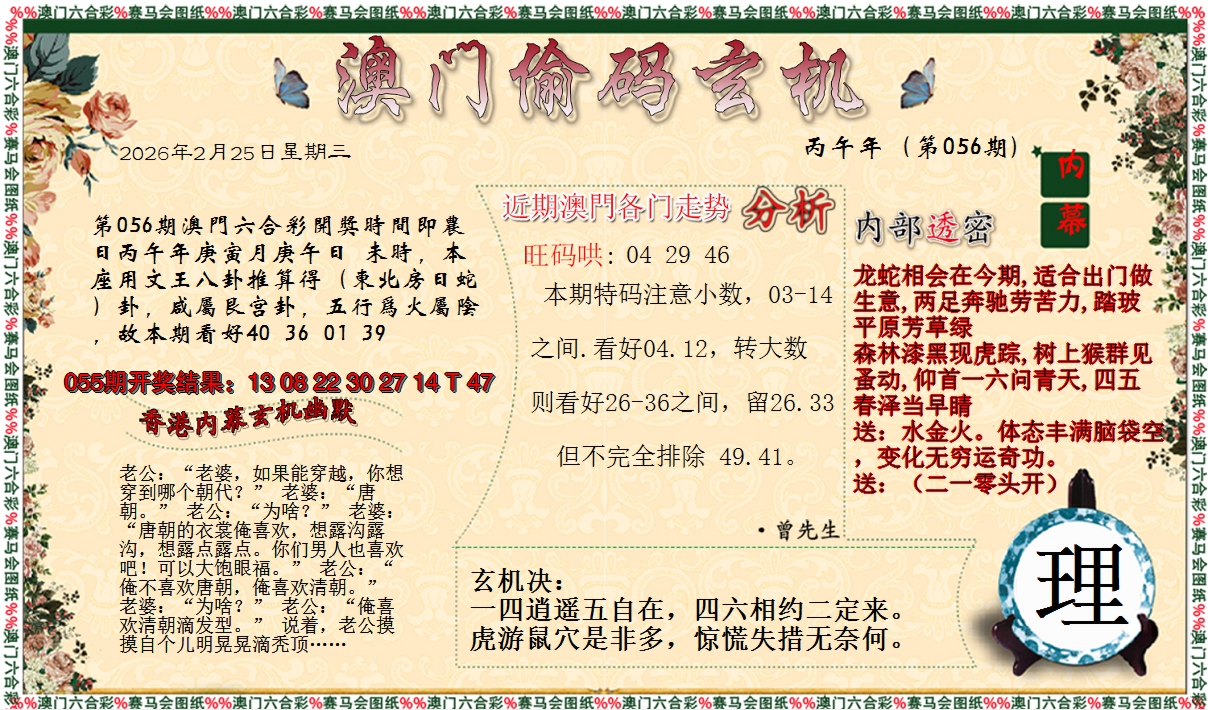 %%澳门六合彩%赛马会图纸%%澳门六合彩%赛马会图纸%%澳门六合彩%赛马会图纸%%澳门六合彩%赛马会图纸%%澳门六合彩%赛马会图纸%%澳门六合彩%赛马会图纸%%
澳门偷码玄机
2026年2月25日星期三
丙午年（第056期）
内
幕
第056期澳門六合彩開獎時間即農
日丙午年庚寅月庚午日 未時，本
座用文王八卦推算得（東北房日蛇
）卦，咸屬艮宫卦，五行爲火屬陰
，故本期看好40 36 01 39
055期开奖结果：13 08 22 30 27 14 T 47
香港内幕玄机幽默
老公：“老婆，如果能穿越，你想
穿到哪个朝代？” 老婆：“唐
朝。” 老公：“为啥？” 老婆：
“唐朝的衣裳俺喜欢，想露沟露
沟，想露点露点。你们男人也喜欢
吧！可以大饱眼福。” 老公：“
俺不喜欢唐朝，俺喜欢清朝。”
老婆：“为啥？” 老公：“俺喜
欢清朝滴发型。” 说着，老公摸
摸自个儿明晃晃滴秃顶……
近期澳門各门走势 分析
旺码哄: 04 29 46
本期特码注意小数，03-14
之间.看好04.12，转大数
则看好26-36之间，留26.33
但不完全排除 49.41。
·曾先生
内部透密
龙蛇相会在今期,适合出门做
生意,两足奔驰劳苦力,踏玻
平原芳草绿
森林漆黑现虎踪,树上猴群见
蚤动,仰首一六问青天,四五
春泽当早睛
送：水金火。体态丰满脑袋空
，变化无穷运奇功。
送：（二一零头开）
玄机决：
一四逍遥五自在，四六相约二定来。
虎游鼠穴是非多，惊慌失措无奈何。
理
%%澳门六合彩%赛马会图纸%%澳门六合彩%赛马会图纸%%澳门六合彩%赛马会图纸%%澳门六合彩%赛马会图纸%%澳门六合彩%赛马会图纸%%澳门六合彩%赛马会图纸%%